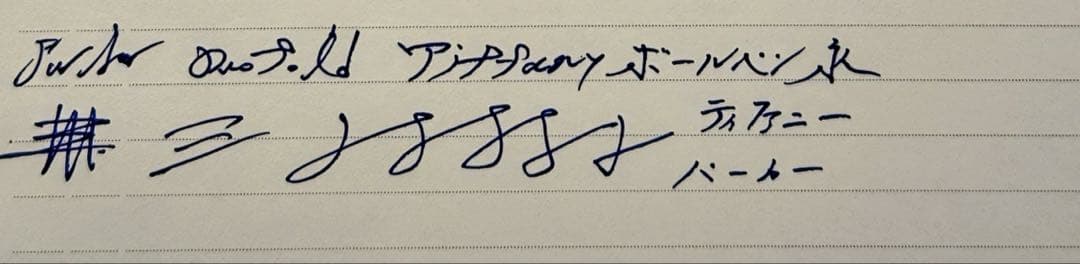 Parker Duofold Tiffany ボールペン 永
ティファニー
パーカー